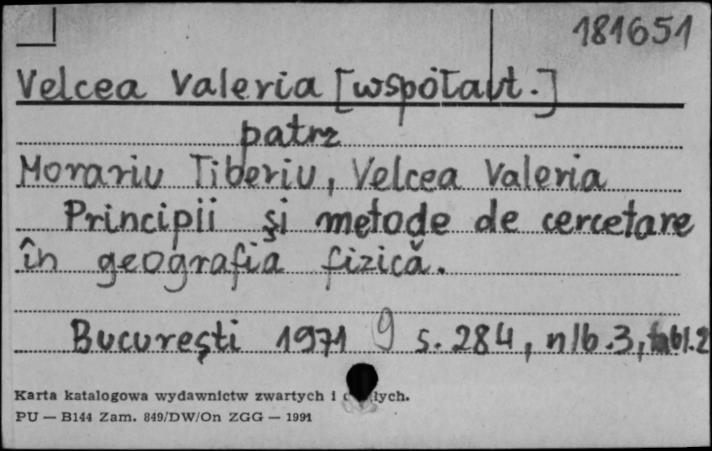 181651
Velcea Valeria [współaut.]
patrz
Morariu Tiberiu, Velcea Valeria
Principii şi metode de cercetare
în geografia fizică.
Bucureşti 1971 9 s. 284, nlb. 3, tabl. 2
Karta katalogowa wydawnictw zwartych i
PU — B144 Zam. 849/DW/On ZGG — 1991